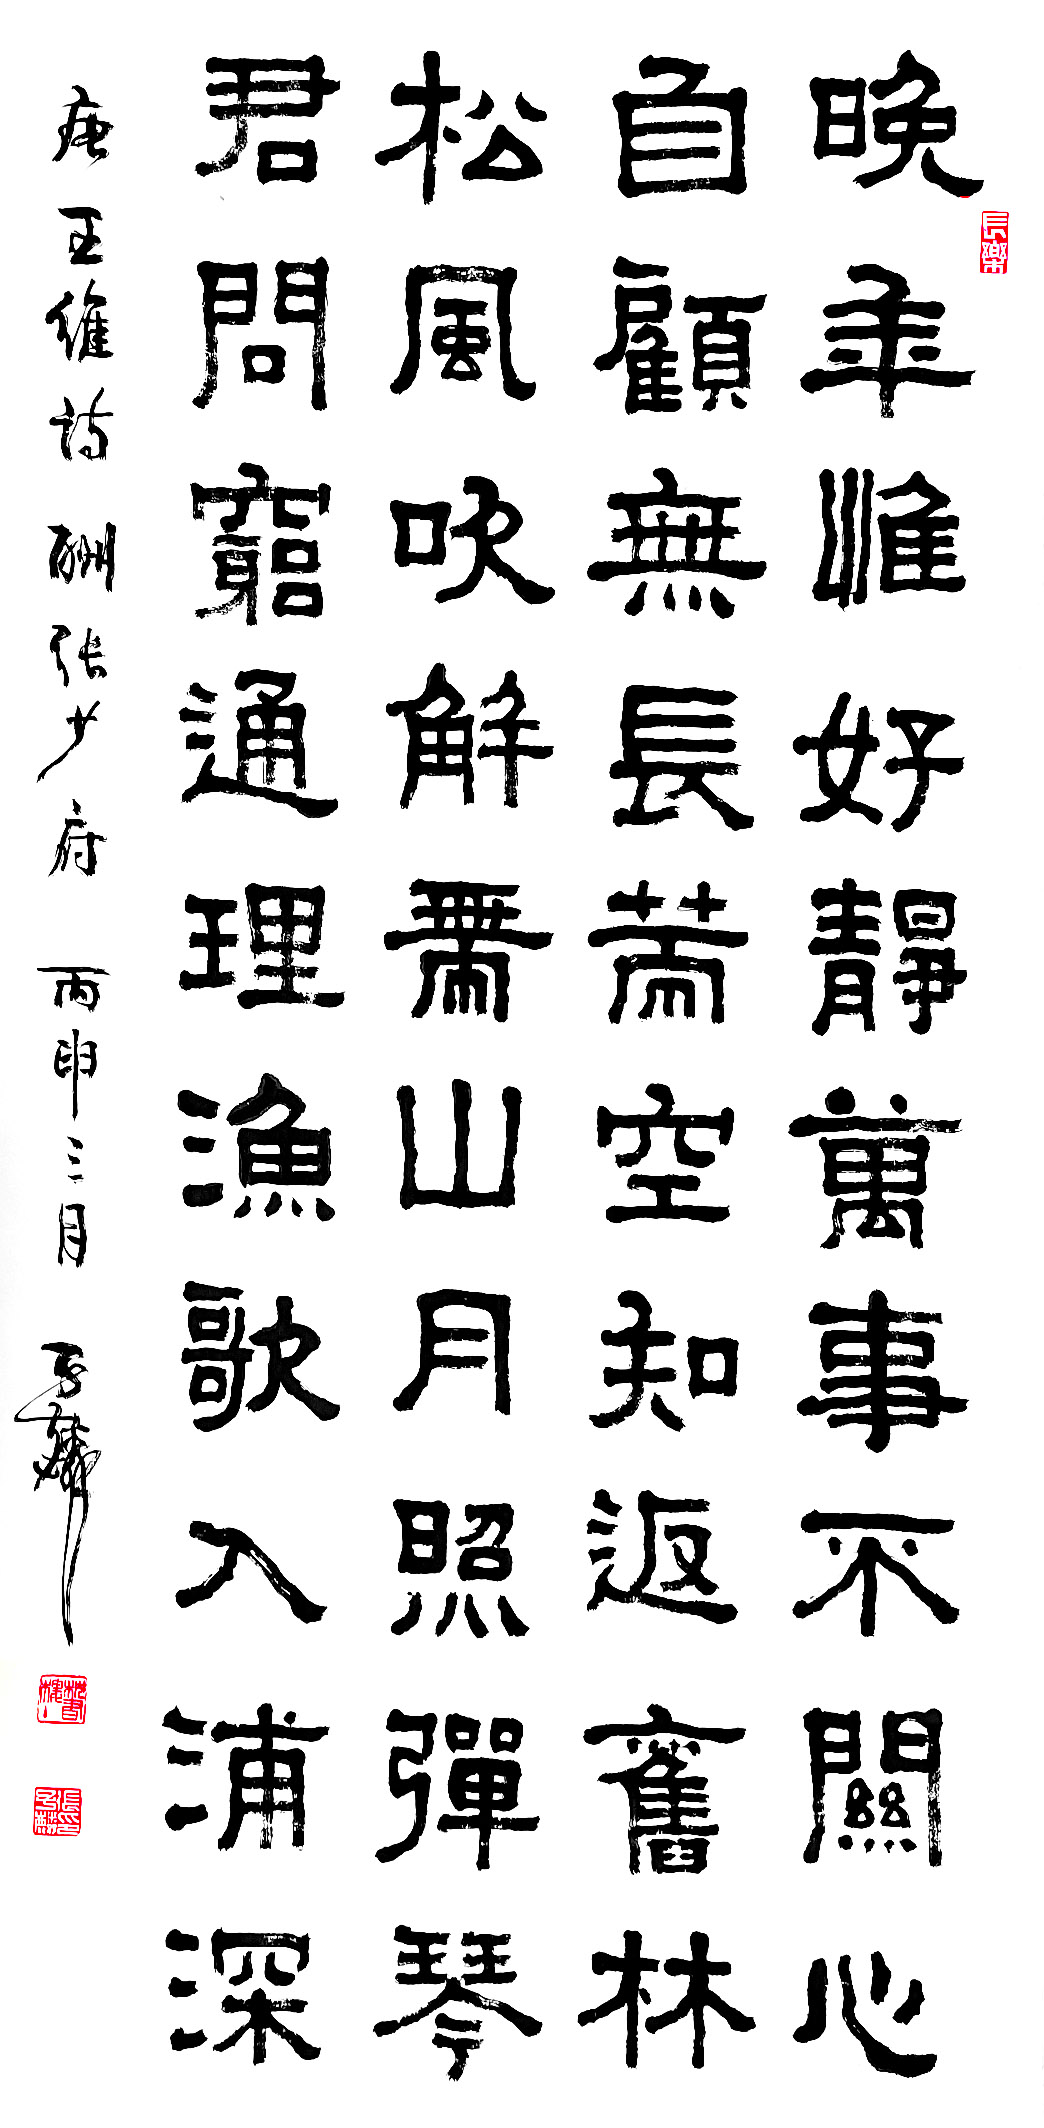 長樂
晚年惟好靜萬事不關心
自顧無長策空知返舊林
松風吹解帶山月照彈琴
君問窮通理漁歌入浦深
唐王維詩 酬張少府 丙申三月